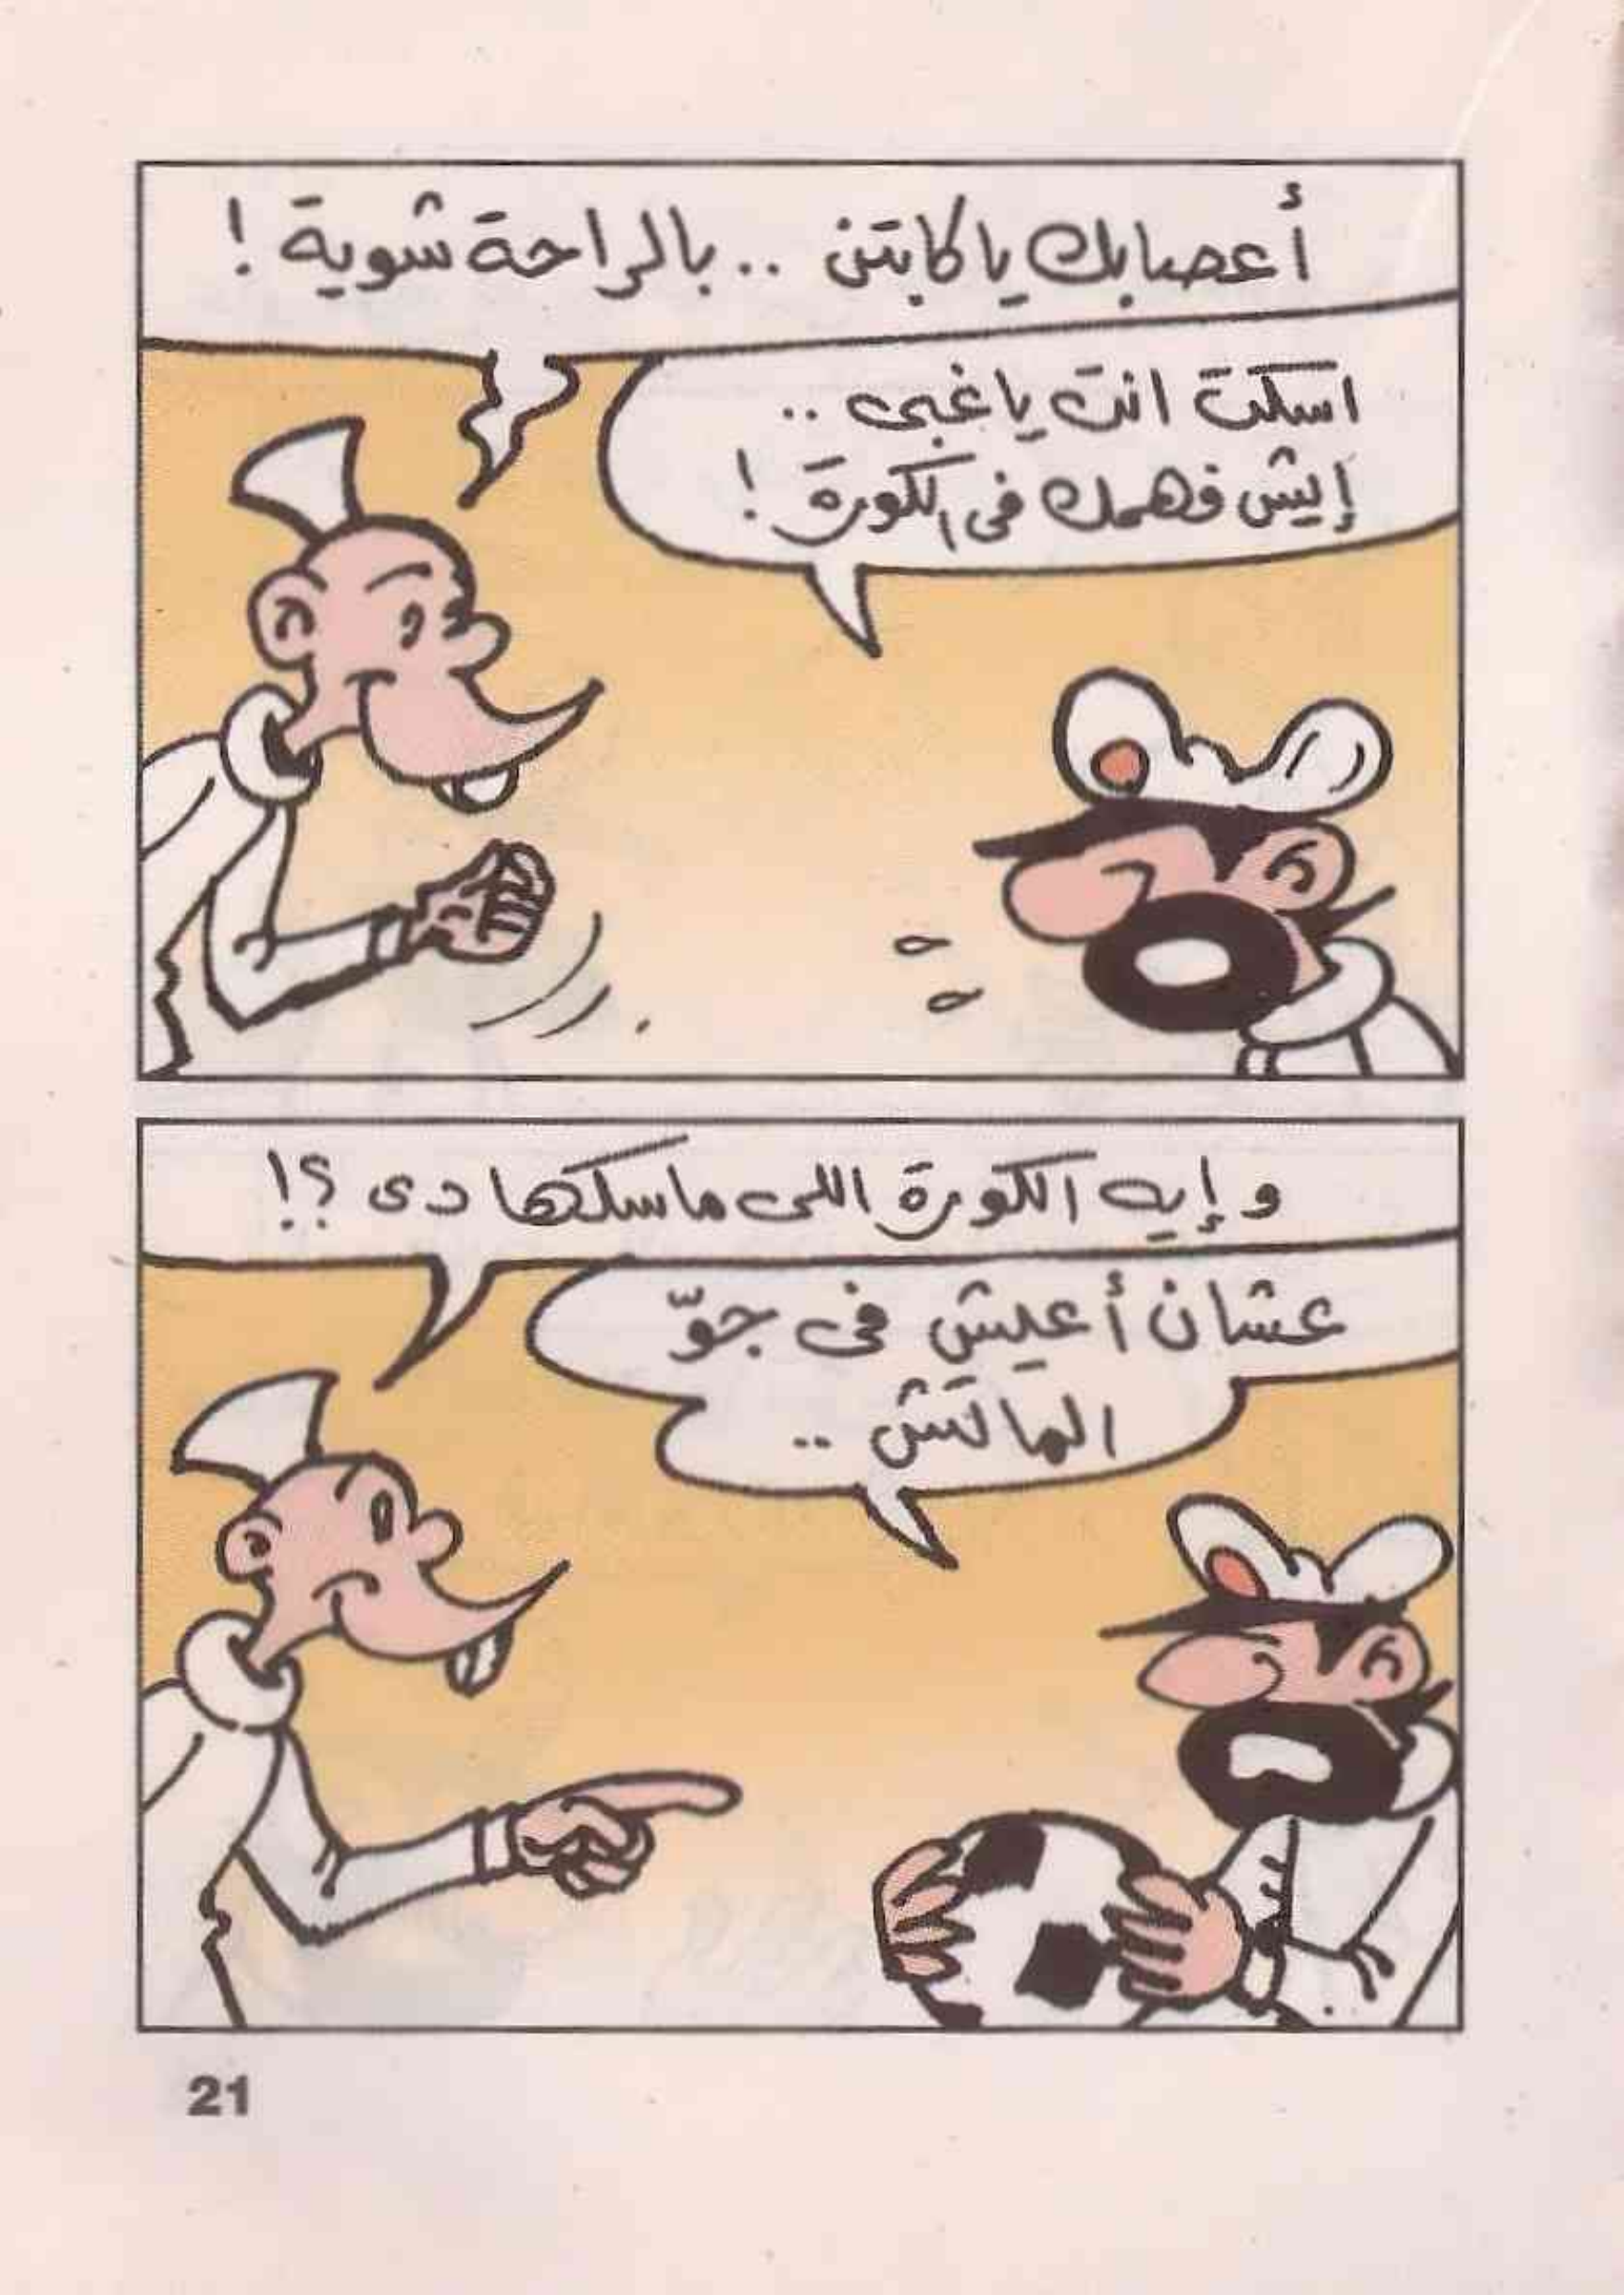 أعصابك يا كابتن .. بالراحة شوية !
اسكت انت يا غبى ..
إيش فهمك فى الكورة !
و إيه الكورة اللى ماسكها دى ؟!
عشان أعيش فى جوّ
الماتش ..
21